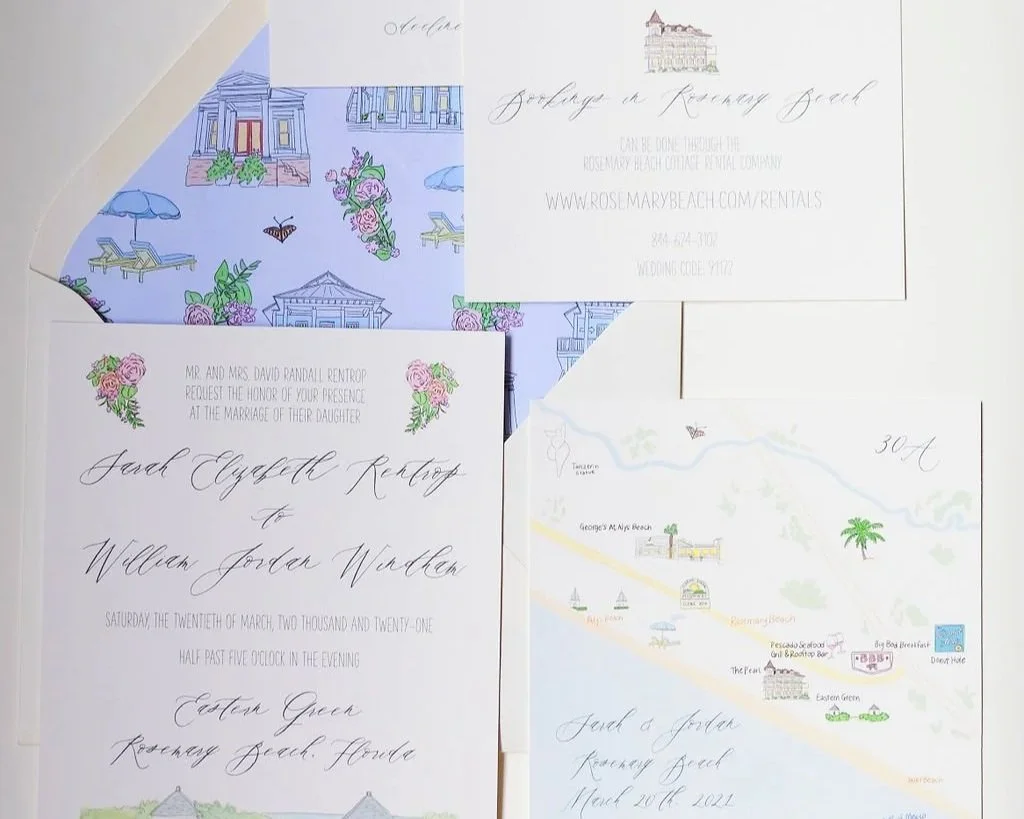 decline
Bookings in Rosemary Beach
CAN BE DONE THROUGH THE
ROSEMARY BEACH COTTAGE RENTAL COMPANY
WWW.ROSEMARYBEACH.COM/RENTALS
844-624-3102
WEDDING CODE: 91172
MR. AND MRS. DAVID RANDALL RENTROP
REQUEST THE HONOR OF YOUR PRESENCE
AT THE MARRIAGE OF THEIR DAUGHTER
Sarah Elizabeth Rentrop
to
William Jordan Windham
SATURDAY, THE TWENTIETH OF MARCH, TWO THOUSAND AND TWENTY-ONE
HALF PAST FIVE O'CLOCK IN THE EVENING
Eastern Green
Rosemary Beach, Florida
30A
George's At Alys Beach
Alys Beach
Rosemary Beach
Pescado Seafood
Grill & Rooftop Bar
Big Bad Breakfast
BBB
Donut Hole
The Pearl
Eastern Green
Inlet Beach
Sarah & Jordan
Rosemary Beach
March 20th, 2021